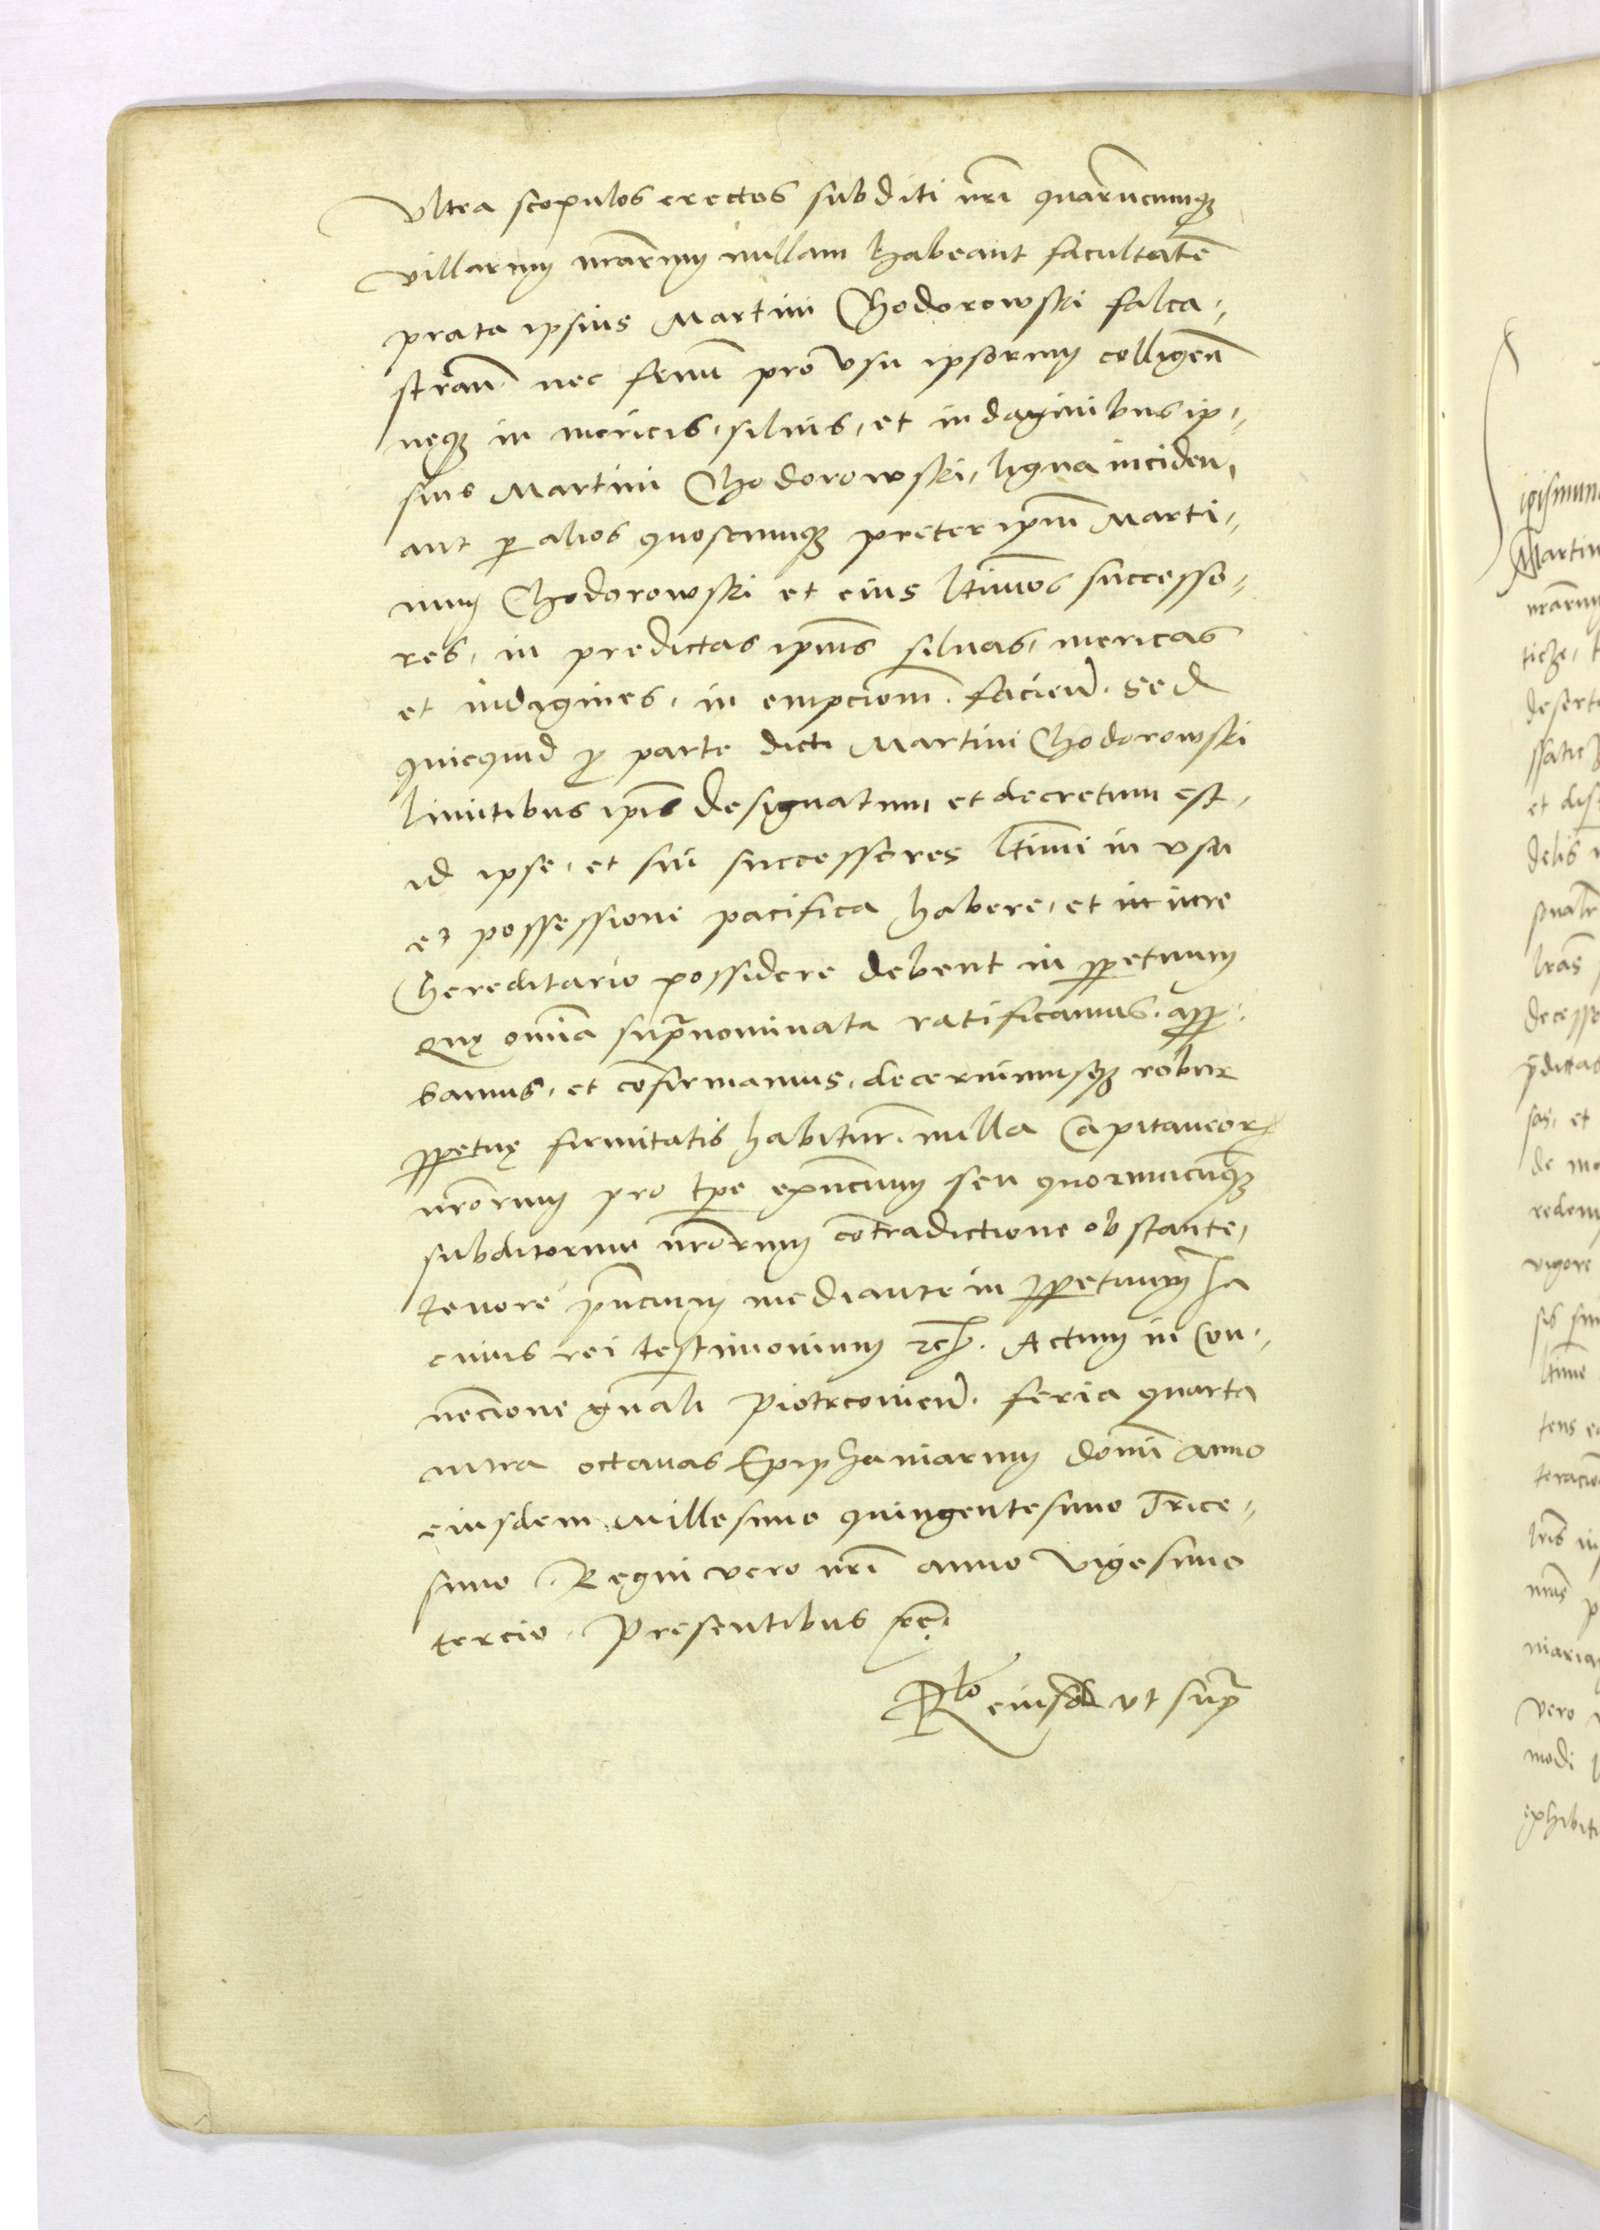 Vltra scopulos erectos subditi nr̃i quarũcumq3
villarum nr̃arum nullam habeant facultatẽ
prata ipsius Martini Chodorowski falca,
strañ. nec fenũ pro vsu ipsorum colligeñ
neq3 in mericis, siluis, et indaginibus ip,
sius Martini Chodorowski, ligna inciden,
aut p alios quoscumq3 preter ip̃m Marti,
num Chodorowski et eius ltimos̃ successo,
res, in predictas ip̃ius siluas, mericas
et indagines, in empciom̃. facien̄. Sed
quicquid p parte dicti Martini Chodorowski
limitibus ip̃is designatum et decretum est,
id ipse, et sui successores ltimĩ in vsu
et possessione pacifica habere, et in iure
hereditario possidere debent in ppetuum
Quę om̃ia supranominata ratificamus, app,
bamus, et cõfirmamus, decernimusq3 robur
ppetuę firmitatis habitur̃. nulla Capitaneor
nr̃orum pro tp̃e exn̄cium seu quorumcũq3
subditorum nr̃orum cõtradictione obstante,
tenore pn̄cium mediante in ppetuum In
cuius rei testimonium zch. Actum in Con,
uẽcione gñali Piotrcouien̄. feria quarta
intra octauas Epiphaniarum domĩ anno
eiusdem Millesimo quingentesimo Trice,
simo. Regni vero nr̃i anno vigesimo
tercio. Presentibus
Rlo eiusd ut supra
igismun
Martin
nr̃arum
desert
et dis
delis
lr̃as
decesse
pdictas
sas, et
de mo
redem
vigore
ltime
tens
teracio
vero
modi
exhibiti